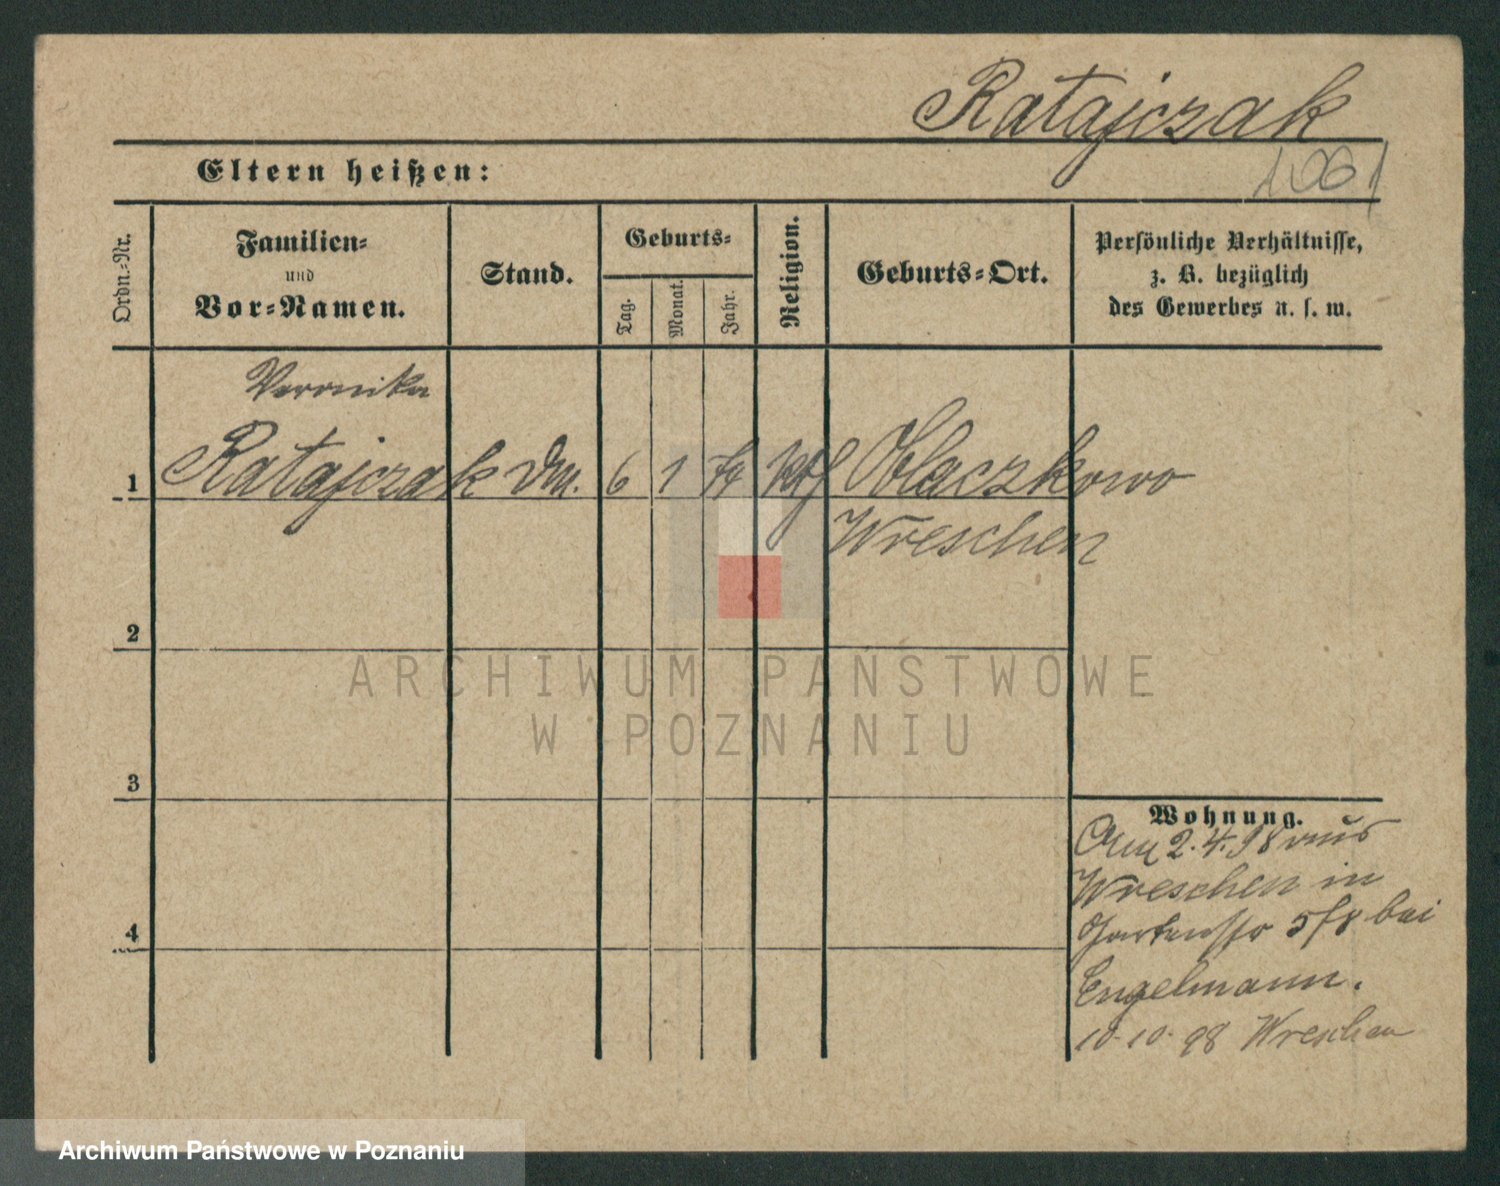 Ratajczak
1061
Eltern heißen:
Ordn.-Nr.
Familien-
und
Vor-Namen.
Stand.
Geburts-
Tag.
Monat.
Jahr.
Religion.
Geburts-Ort.
Persönliche Verhältnisse,
z. B. bezüglich
des Gewerbes u. s. w.
Veronika
1 Ratajczak 6 1 kth
Wreschen
2
ARCHIWUM PAŃSTWOWE
W POZNANIU
3
Wohnung.
Am 2.4.98 aus
Wreschen in
Gartenstr 5/8 bei
4
Engelmann.
10.10.98 Wreschen
Archiwum Państwowe w Poznaniu